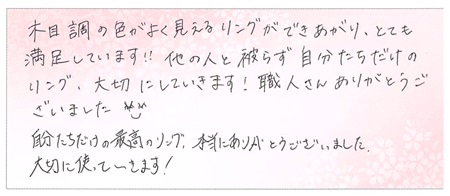 木目調の色がよく見えるリングができあがり、とても
満足しています!! 他の人と被らず自分たちだけの
リング、大切にしていきます！職人さんありがとうご
ざいました
自分たちだけの最高のリング、本当にありがとうございました。
大切に使っていきます！